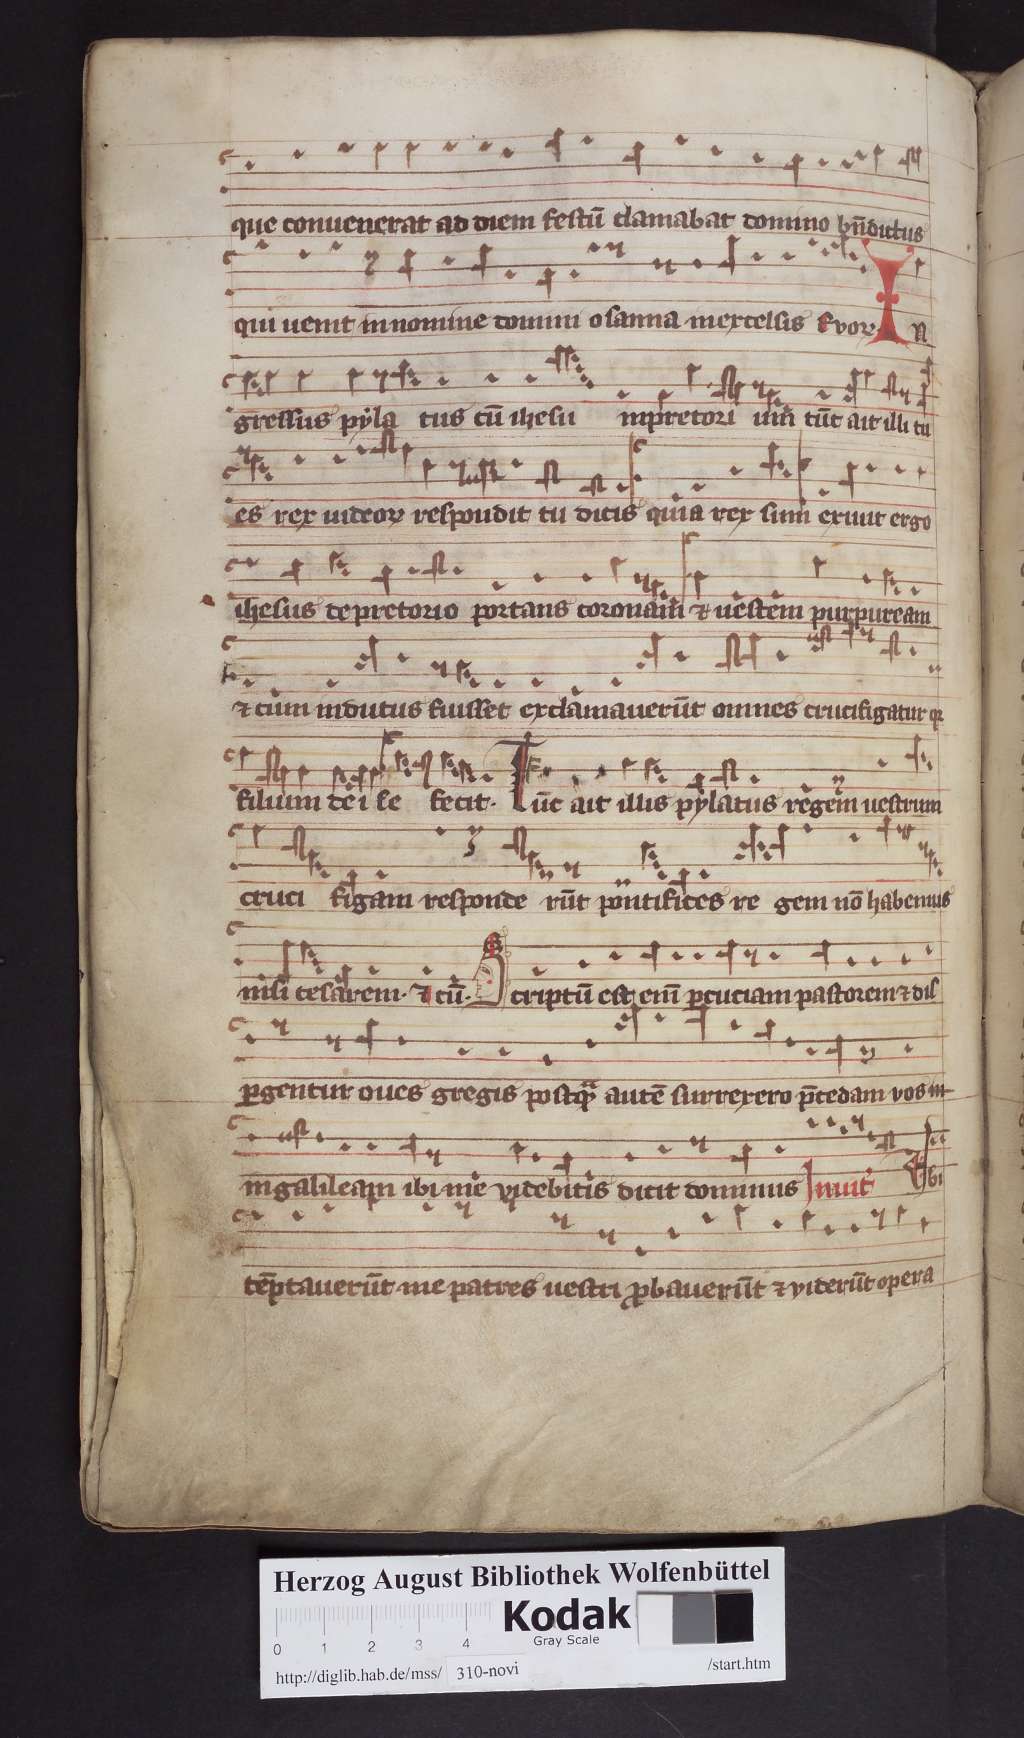 que conuenerat ad diem festū clamabat domino bn̄dictus
qui uenit in nomine domini osanna in excelsis Evovae In
gressus pyla tus cū ihesu in pretori um tūc ait illi tu
es rex iudeoꝝ respondit tu dicis quia rex sum exiuit ergo
ihesus de pretorio portans coronam ⁊ uestem purpuream
⁊ cum indutus fuisset exclamauerūt omnes crucifigatur qꝛ
filium dei se fecit. Tūc ait illis pylatus regem uestrum
cruci figam responde rūt pontifices re gem nō habemus
nisi cesarem. ⁊ cū. Scriptū est enī ꝑcuciam pastorem ⁊ dis
ꝑgentur oues gregis postqᷓ autē surrexero p̄cedam vos in
in galileam ibi me videbitis dicit dominus Inuit Vbi
tēptauerūt me patres uestri ꝓbauerūt ⁊ viderūt opera
Herzog August Bibliothek Wolfenbüttel
Kodak
Gray Scale
0 1 2 3 4
http://diglib.hab.de/mss/ 310-novi /start.htm